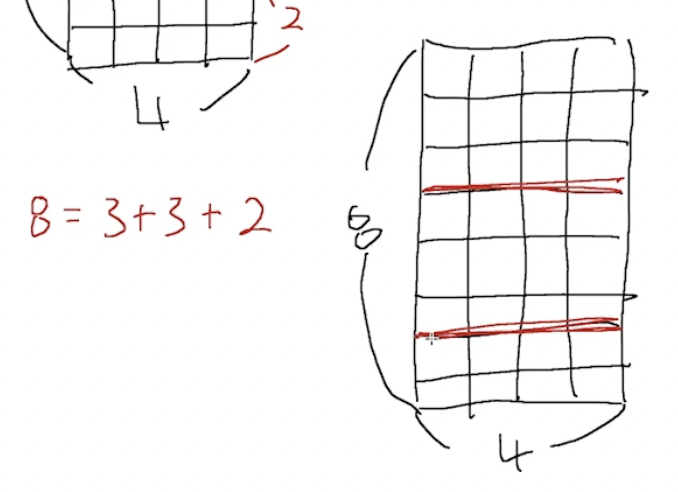 2
4
8 = 3+3+2
8
4